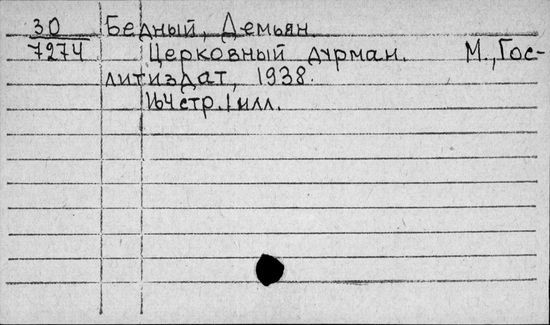 30 Бедный, Демьян
7274 Церковный дурман. М., Гос-
литиздат, 1938.
164 стр. 1 илл.